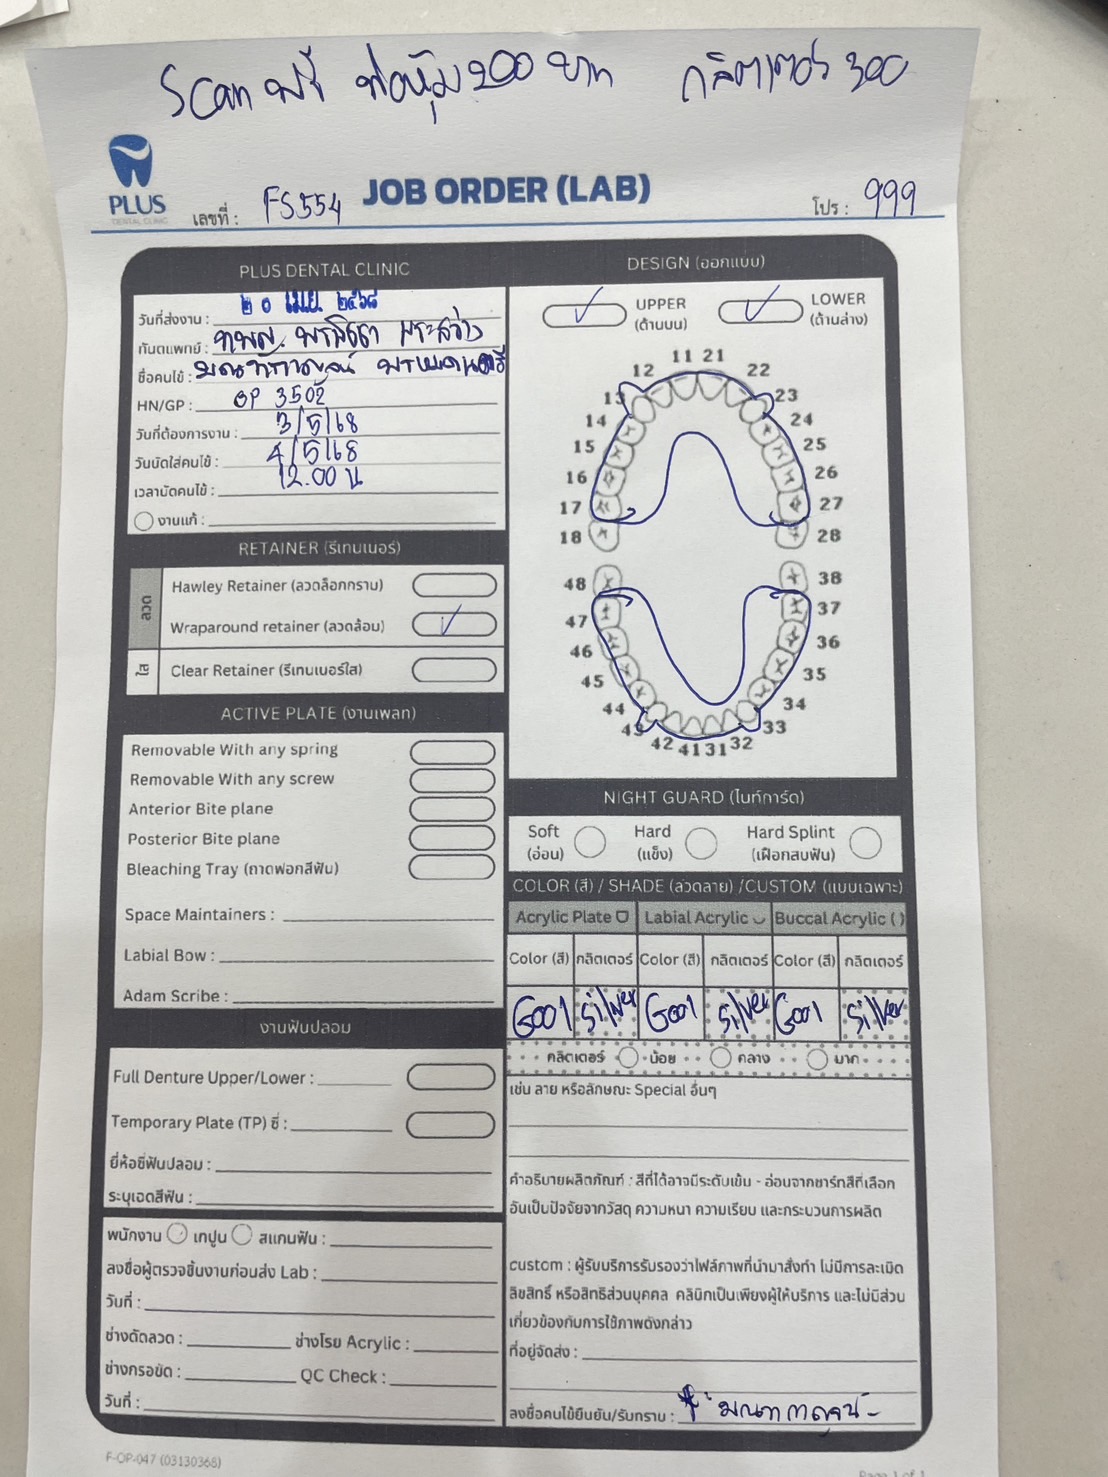 Scan ฟรี ท่อหุ้ม 200 บาท กลิตเตอร์ 300
PLUS
DENTAL CLINIC
เลขที่ : FS554
JOB ORDER (LAB)
โปร : 999
PLUS DENTAL CLINIC
วันที่ส่งงาน : ๒๐ เม.ย. ๒๕๖๘
ทันตแพทย์ : ทพญ.
ชื่อคนไข้ :
HN/GP : GP 3502
วันที่ต้องการงาน : 3/5/68
วันนัดใส่คนไข้ : 4/5/68
เวลานัดคนไข้ : 12.00 น
งานแก้ :
RETAINER (รีเทนเนอร์)
ลวด
Hawley Retainer (ลวดล็อกกราบ)
Wraparound retainer (ลวดล้อม)
ใส
Clear Retainer (รีเทนเนอร์ใส)
ACTIVE PLATE (งานเพลท)
Removable With any spring
Removable With any screw
Anterior Bite plane
Posterior Bite plane
Bleaching Tray (ถาดฟอกสีฟัน)
Space Maintainers :
Labial Bow :
Adam Scribe :
งานฟันปลอม
Full Denture Upper/Lower :
Temporary Plate (TP) ซี่ :
ยี่ห้อซี่ฟันปลอม :
ระบุเฉดสีฟัน :
พนักงาน เทปูน สแกนฟัน :
ลงชื่อผู้ตรวจชิ้นงานก่อนส่ง Lab :
วันที่ :
ช่างดัดลวด : ช่างโรย Acrylic :
ช่างกรอขัด : QC Check :
วันที่ :
DESIGN (ออกแบบ)
UPPER
(ด้านบน)
LOWER
(ด้านล่าง)
11 21
12 22
13 23
14 24
15 25
16 26
17 27
18 28
48 38
47 37
46 36
45 35
44 34
43 33
42 41 31 32
NIGHT GUARD (ไนท์การ์ด)
Soft
(อ่อน)
Hard
(แข็ง)
Hard Splint
(เฝือกสบฟัน)
COLOR (สี) / SHADE (ลวดลาย) /CUSTOM (แบบเฉพาะ)
Acrylic Plate Labial Acrylic Buccal Acrylic ( )
Color (สี) กลิตเตอร์ Color (สี) กลิตเตอร์ Color (สี) กลิตเตอร์
G001 Silver G001 Silver G001 Silver
กลิตเตอร์ น้อย กลาง มาก
เช่น ลาย หรือลักษณะ Special อื่นๆ
คำอธิบายผลิตภัณฑ์ : สีที่ได้อาจมีระดับเข้ม - อ่อนจากชาร์ทสีที่เลือก
อันเป็นปัจจัยจากวัสดุ ความหนา ความเรียบ และกระบวนการผลิต
custom : ผู้รับบริการรับรองว่าไฟล์ภาพที่นำมาสั่งทำ ไม่มีการละเมิด
ลิขสิทธิ์ หรือสิทธิส่วนบุคคล คลินิกเป็นเพียงผู้ให้บริการ และไม่มีส่วน
เกี่ยวข้องกับการใช้ภาพดังกล่าว
ที่อยู่จัดส่ง :
ลงชื่อคนไข้ยืนยัน/รับทราบ :
F-OP-047 (03130368)
Page 1 of 1